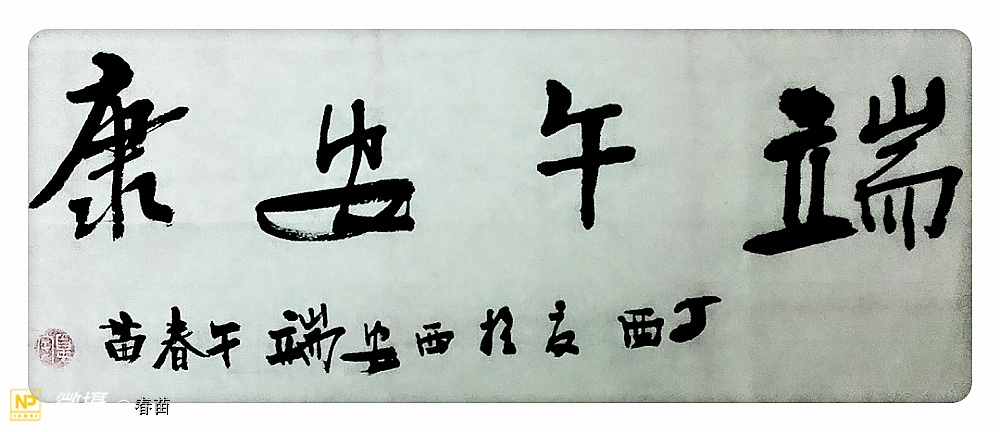 端午安康
丁酉夏於西安端午春苗
NP
春苗